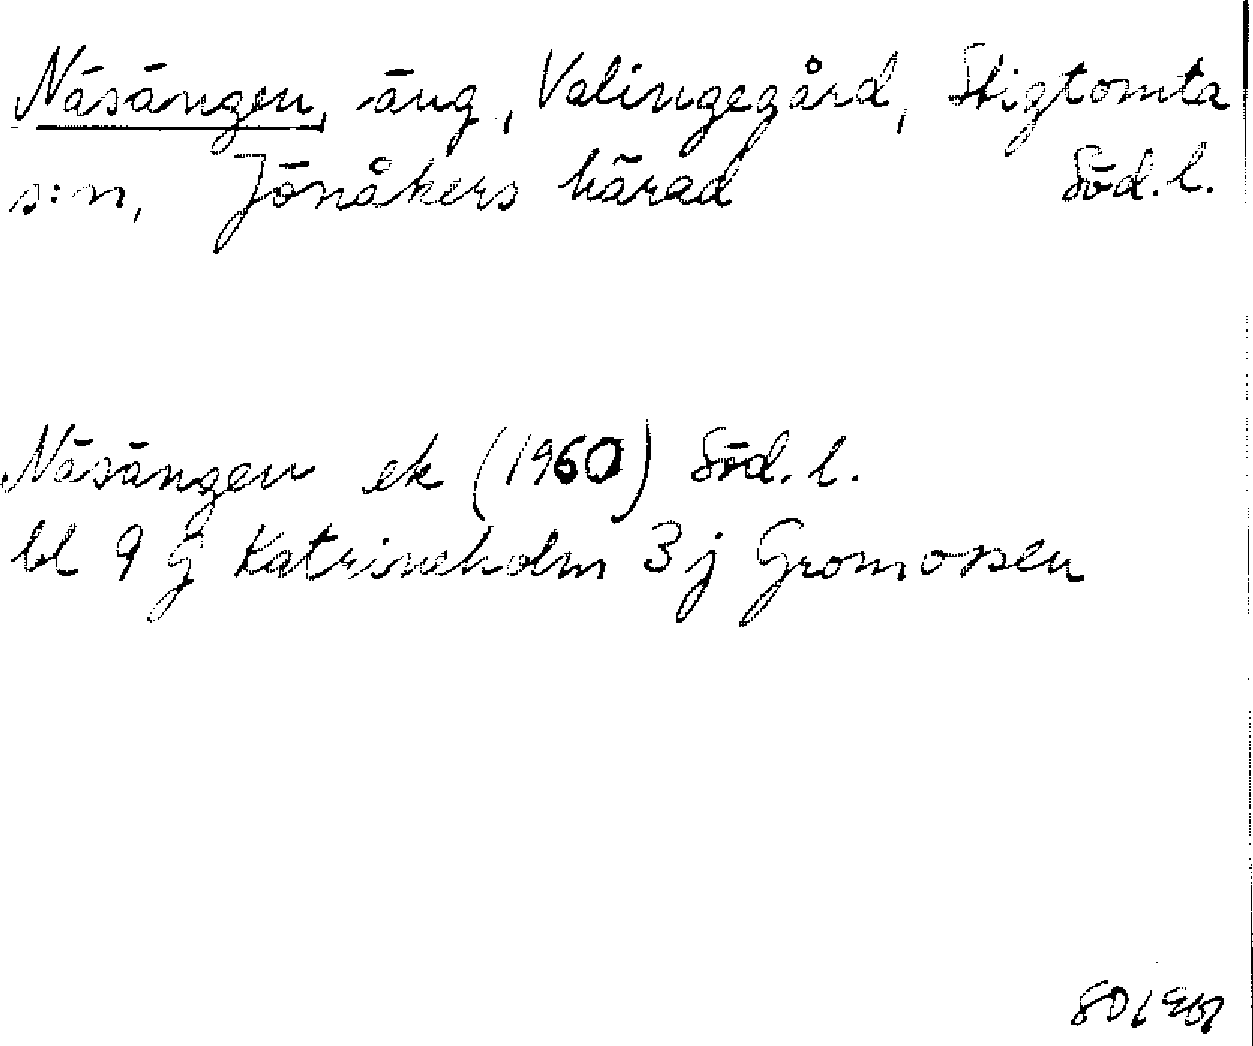 Näsängen, äng, Valingegård, Stigtomta
s:n, Jönåkers härad Söd. l.
Näsängen ek (1960) Söd. l.
bl 9 G Katrineholm 3 j Gromossen